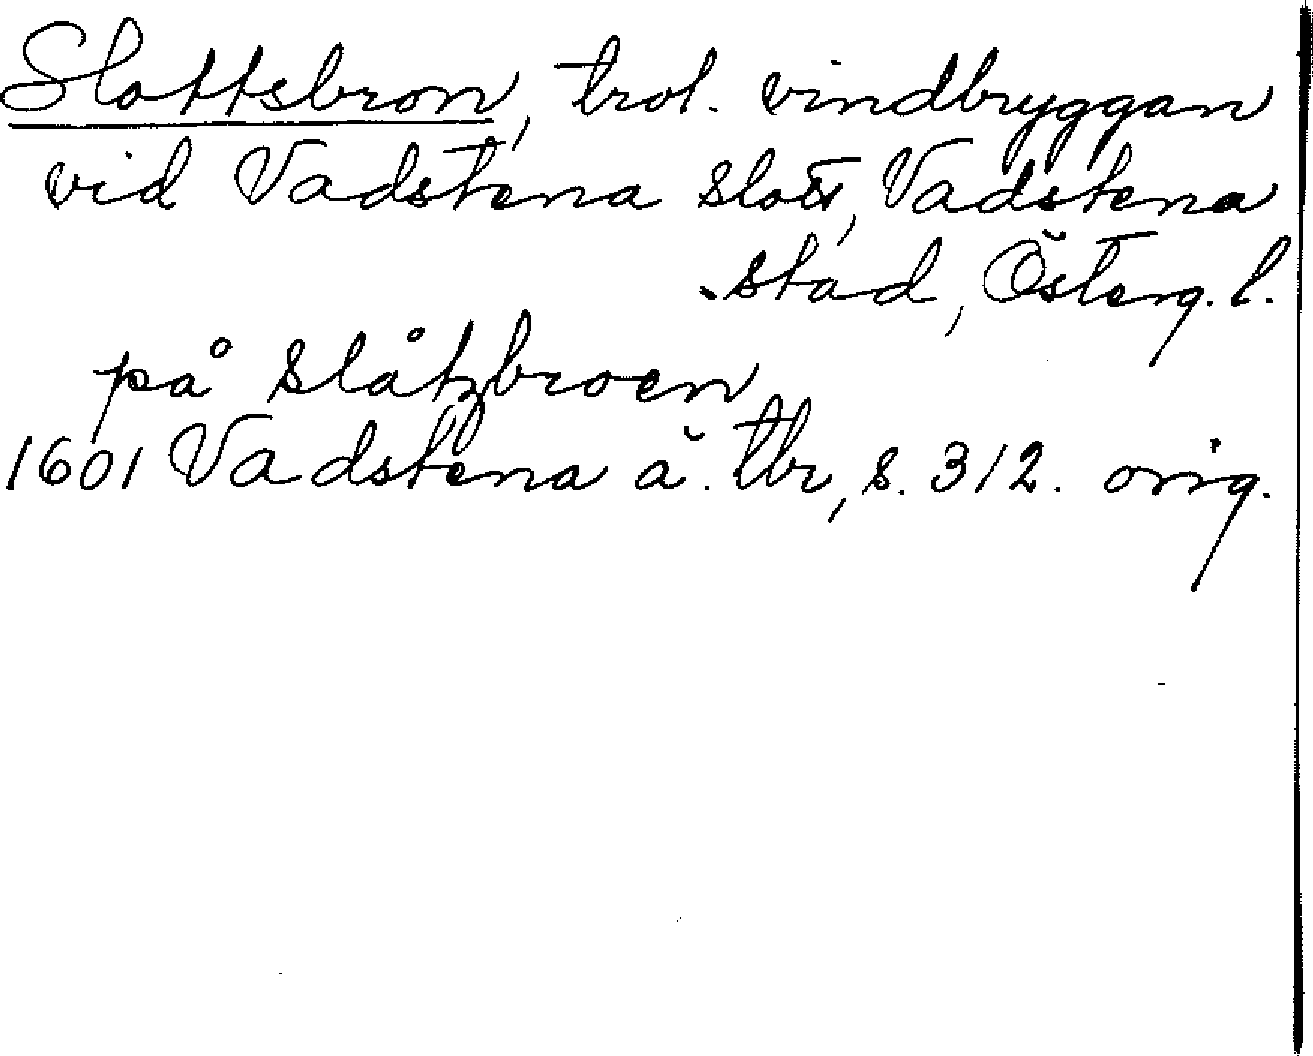 Slottsbron, trol. vindbryggan
vid Vadstena slott, Vadstena
stad, Österg. l.
på slåtzbroen
1601 Vadstena ä. tbr, s. 312. orig.